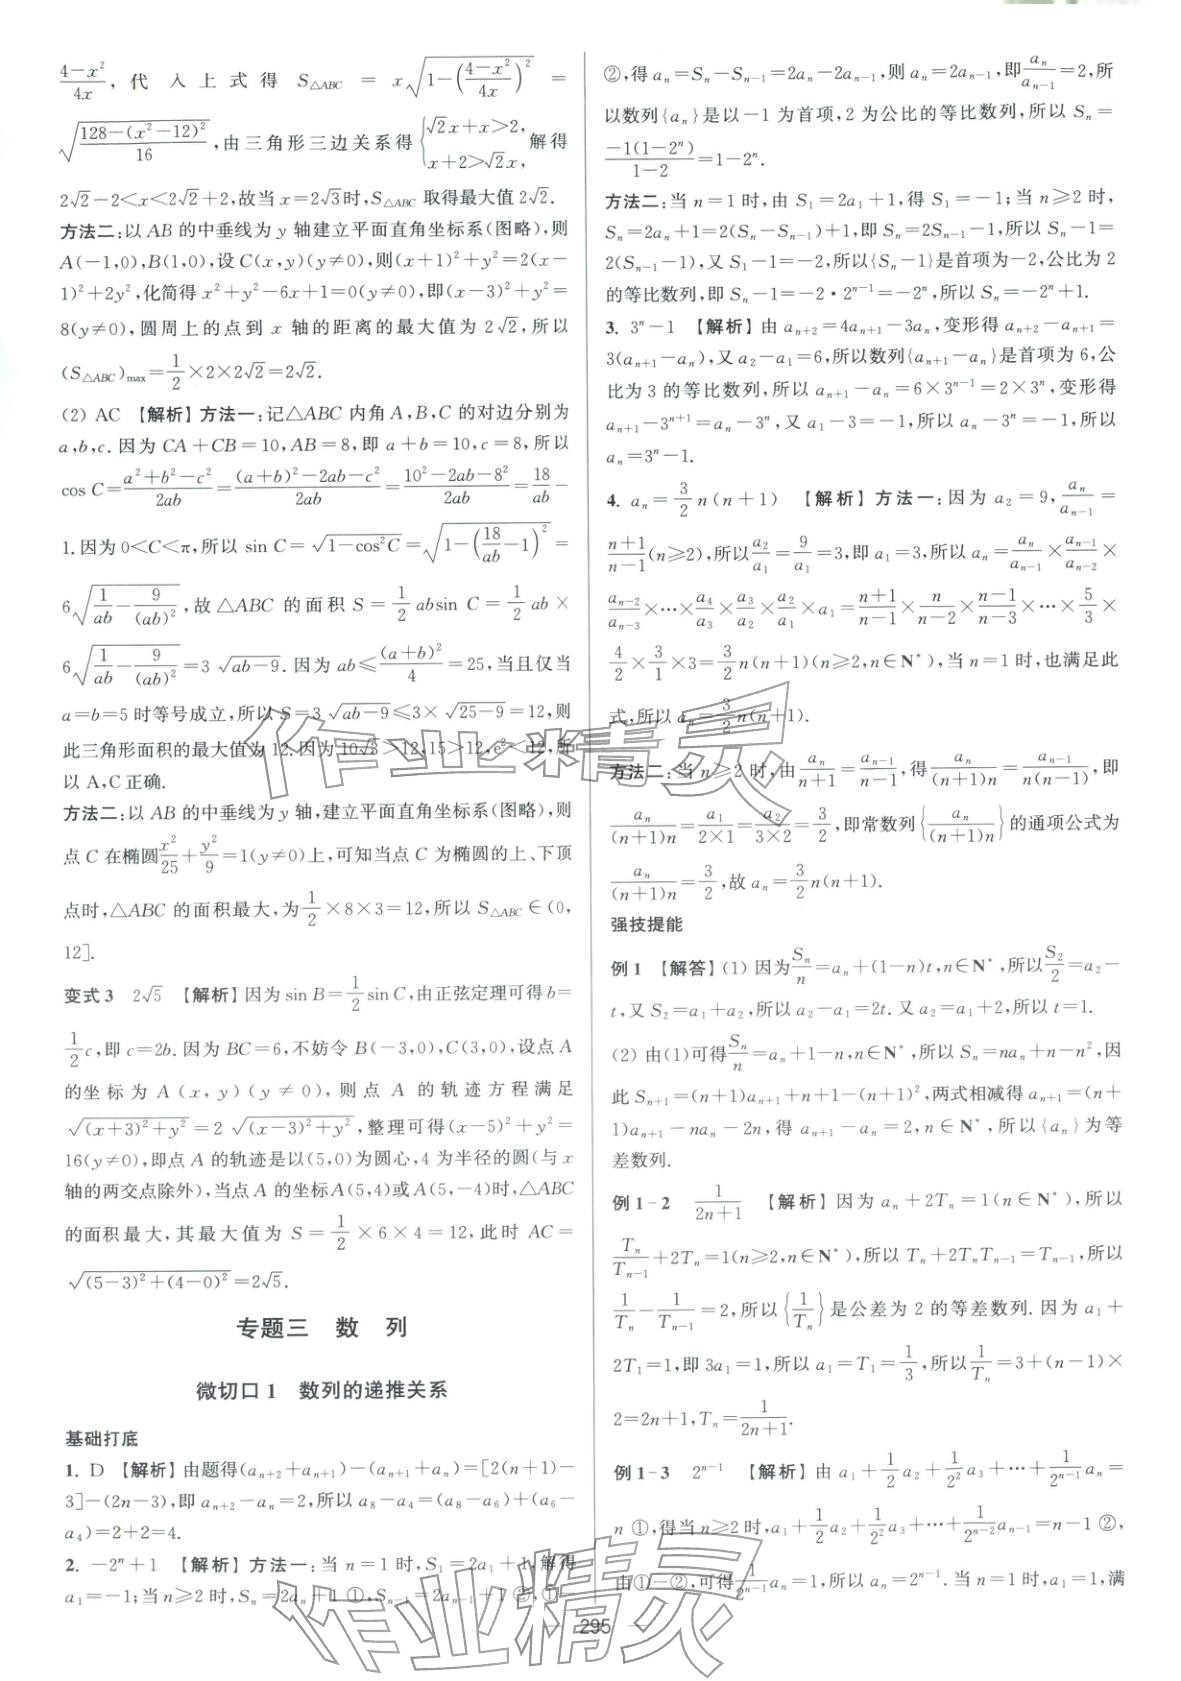 (4−x²)/(4x), 代入上式得 S△ABC = x√(1−((4−x²)/(4x))²) =
√((128−(x²−12)²)/16), 由三角形三边关系得{√2x+x>2, x+2>√2x, 解得
2√2−2<x<2√2+2,故当 x=2√3时,S△ABC 取得最大值 2√2.
方法二:以 AB 的中垂线为 y 轴建立平面直角坐标系(图略),则
A(−1,0),B(1,0),设 C(x,y)(y≠0),则(x+1)²+y²=2(x−
1)²+2y²,化简得 x²+y²−6x+1=0(y≠0),即(x−3)²+y²=
8(y≠0),圆周上的点到 x 轴的距离的最大值为 2√2,所以
(S△ABC)max=1/2×2×2√2=2√2.
(2) AC 【解析】方法一:记△ABC 内角 A,B,C 的对边分别为
a,b,c.因为 CA+CB=10,AB=8,即 a+b=10,c=8,所以
cos C=(a²+b²−c²)/(2ab)=((a+b)²−2ab−c²)/(2ab)=(10²−2ab−8²)/(2ab)=18/ab−
1.因为 0<C<π,所以 sin C=√(1−cos²C)=√(1−(18/ab−1)²)=
6√(1/ab−9/(ab)²),故△ABC 的面积 S=1/2 absin C=1/2 ab×
6√(1/ab−9/(ab)²)=3√(ab−9).因为 ab≤(a+b)²/4=25,当且仅当
a=b=5 时等号成立,所以 S=3√(ab−9)≤3×√(25−9)=12,则
此三角形面积的最大值为 12.因为 10√3>12,15>12,e²<12,所
以 A,C 正确.
方法二:以 AB 的中垂线为 y 轴,建立平面直角坐标系(图略),则
点 C 在椭圆x²/25+y²/9=1(y≠0)上,可知当点 C 为椭圆的上、下顶
点时,△ABC 的面积最大,为1/2×8×3=12,所以 S△ABC∈(0,
12].
变式 3 2√5 【解析】因为 sin B=1/2 sin C,由正弦定理可得 b=
1/2 c,即 c=2b.因为 BC=6,不妨令 B(−3,0),C(3,0),设点 A
的坐标为 A(x,y)(y≠0),则点 A 的轨迹方程满足
√((x+3)²+y²)=2√((x−3)²+y²),整理可得(x−5)²+y²=
16(y≠0),即点 A 的轨迹是以(5,0)为圆心,4 为半径的圆(与 x
轴的两交点除外),当点 A 的坐标A(5,4)或A(5,−4)时,△ABC
的面积最大,其最大值为 S=1/2×6×4=12,此时 AC=
√((5−3)²+(4−0)²)=2√5.
专题三 数 列
微切口 1 数列的递推关系
基础打底
1. D 【解析】由题得(aₙ₊₂+aₙ₊₁)−(aₙ₊₁+aₙ)=[2(n+1)−
3]−(2n−3),即 aₙ₊₂−aₙ=2,所以 a₈−a₄=(a₈−a₆)+(a₆−
a₄)=2+2=4.
2. −2ⁿ+1 【解析】方法一:当 n=1 时,S₁=2a₁+1,解得
a₁=−1;当 n≥2 时,Sₙ=2aₙ+1 ①,Sₙ₋₁=2aₙ₋₁+1 ②,①−
②,得 aₙ=Sₙ−Sₙ₋₁=2aₙ−2aₙ₋₁,则 aₙ=2aₙ₋₁,即aₙ/aₙ₋₁=2,所
以数列{aₙ}是以−1 为首项,2 为公比的等比数列,所以 Sₙ=
−1(1−2ⁿ)/(1−2)=1−2ⁿ.
方法二:当 n=1 时,由 S₁=2a₁+1,得 S₁=−1;当 n≥2 时,
Sₙ=2aₙ+1=2(Sₙ−Sₙ₋₁)+1,即 Sₙ=2Sₙ₋₁−1,所以 Sₙ−1=
2(Sₙ₋₁−1),又 S₁−1=−2,所以{Sₙ−1}是首项为−2,公比为 2
的等比数列,即 Sₙ−1=−2·2ⁿ⁻¹=−2ⁿ,所以 Sₙ=−2ⁿ+1.
3. 3ⁿ−1 【解析】由 aₙ₊₂=4aₙ₊₁−3aₙ,变形得 aₙ₊₂−aₙ₊₁=
3(aₙ₊₁−aₙ),又 a₂−a₁=6,所以数列{aₙ₊₁−aₙ}是首项为 6,公
比为 3 的等比数列,所以 aₙ₊₁−aₙ=6×3ⁿ⁻¹=2×3ⁿ,变形得
aₙ₊₁−3ⁿ⁺¹=aₙ−3ⁿ,又 a₁−3=−1,所以 aₙ−3ⁿ=−1,所以
aₙ=3ⁿ−1.
4. aₙ=3/2 n(n+1) 【解析】方法一:因为 a₂=9,aₙ/aₙ₋₁=
(n+1)/(n−1)(n≥2),所以a₂/a₁=9/a₁=3,即 a₁=3,所以 aₙ=aₙ/aₙ₋₁×aₙ₋₁/aₙ₋₂×
aₙ₋₂/aₙ₋₃×…×a₄/a₃×a₃/a₂×a₂/a₁×a₁=(n+1)/(n−1)×n/(n−2)×(n−1)/(n−3)×…×5/3×
4/2×3/1×3=3/2 n(n+1)(n≥2,n∈N*),当 n=1 时,也满足此
式,所以 aₙ=3/2 n(n+1).
方法二:当 n≥2 时,由aₙ/(n+1)=aₙ₋₁/(n−1),得aₙ/((n+1)n)=aₙ₋₁/(n(n−1)),即
aₙ/((n+1)n)=a₁/(2×1)=a₂/(3×2)=3/2,即常数列{aₙ/((n+1)n)}的通项公式为
aₙ/((n+1)n)=3/2,故 aₙ=3/2 n(n+1).
强技提能
例 1 【解答】(1) 因为Sₙ/n=aₙ+(1−n)t,n∈N*,所以S₂/2=a₂−
t,又 S₂=a₁+a₂,所以 a₂−a₁=2t.又 a₂=a₁+2,所以 t=1.
(2) 由(1)可得Sₙ/n=aₙ+1−n,n∈N*,所以 Sₙ=naₙ+n−n²,因
此 Sₙ₊₁=(n+1)aₙ₊₁+n+1−(n+1)²,两式相减得 aₙ₊₁=(n+
1)aₙ₊₁−naₙ−2n,得 aₙ₊₁−aₙ=2,n∈N*,所以{aₙ}为等
差数列.
例 1-2 1/(2n+1) 【解析】因为 aₙ+2Tₙ=1(n∈N*),所以
Tₙ/Tₙ₋₁+2Tₙ=1(n≥2,n∈N*),所以 Tₙ+2TₙTₙ₋₁=Tₙ₋₁,所以
1/Tₙ−1/Tₙ₋₁=2,所以{1/Tₙ}是公差为 2 的等差数列.因为 a₁+
2T₁=1,即 3a₁=1,所以 a₁=T₁=1/3,所以1/Tₙ=3+(n−1)×
2=2n+1,Tₙ=1/(2n+1).
例 1-3 2ⁿ⁻¹ 【解析】由 a₁+1/2 a₂+1/2² a₃+…+1/2ⁿ⁻¹ aₙ=
n ①,得当 n≥2 时,a₁+1/2 a₂+1/2² a₃+…+1/2ⁿ⁻² aₙ₋₁=n−1 ②,
由①−②,可得1/2ⁿ⁻¹ aₙ=1,所以 aₙ=2ⁿ⁻¹.当 n=1 时,a₁=1,满
295
作业精灵
作业精灵